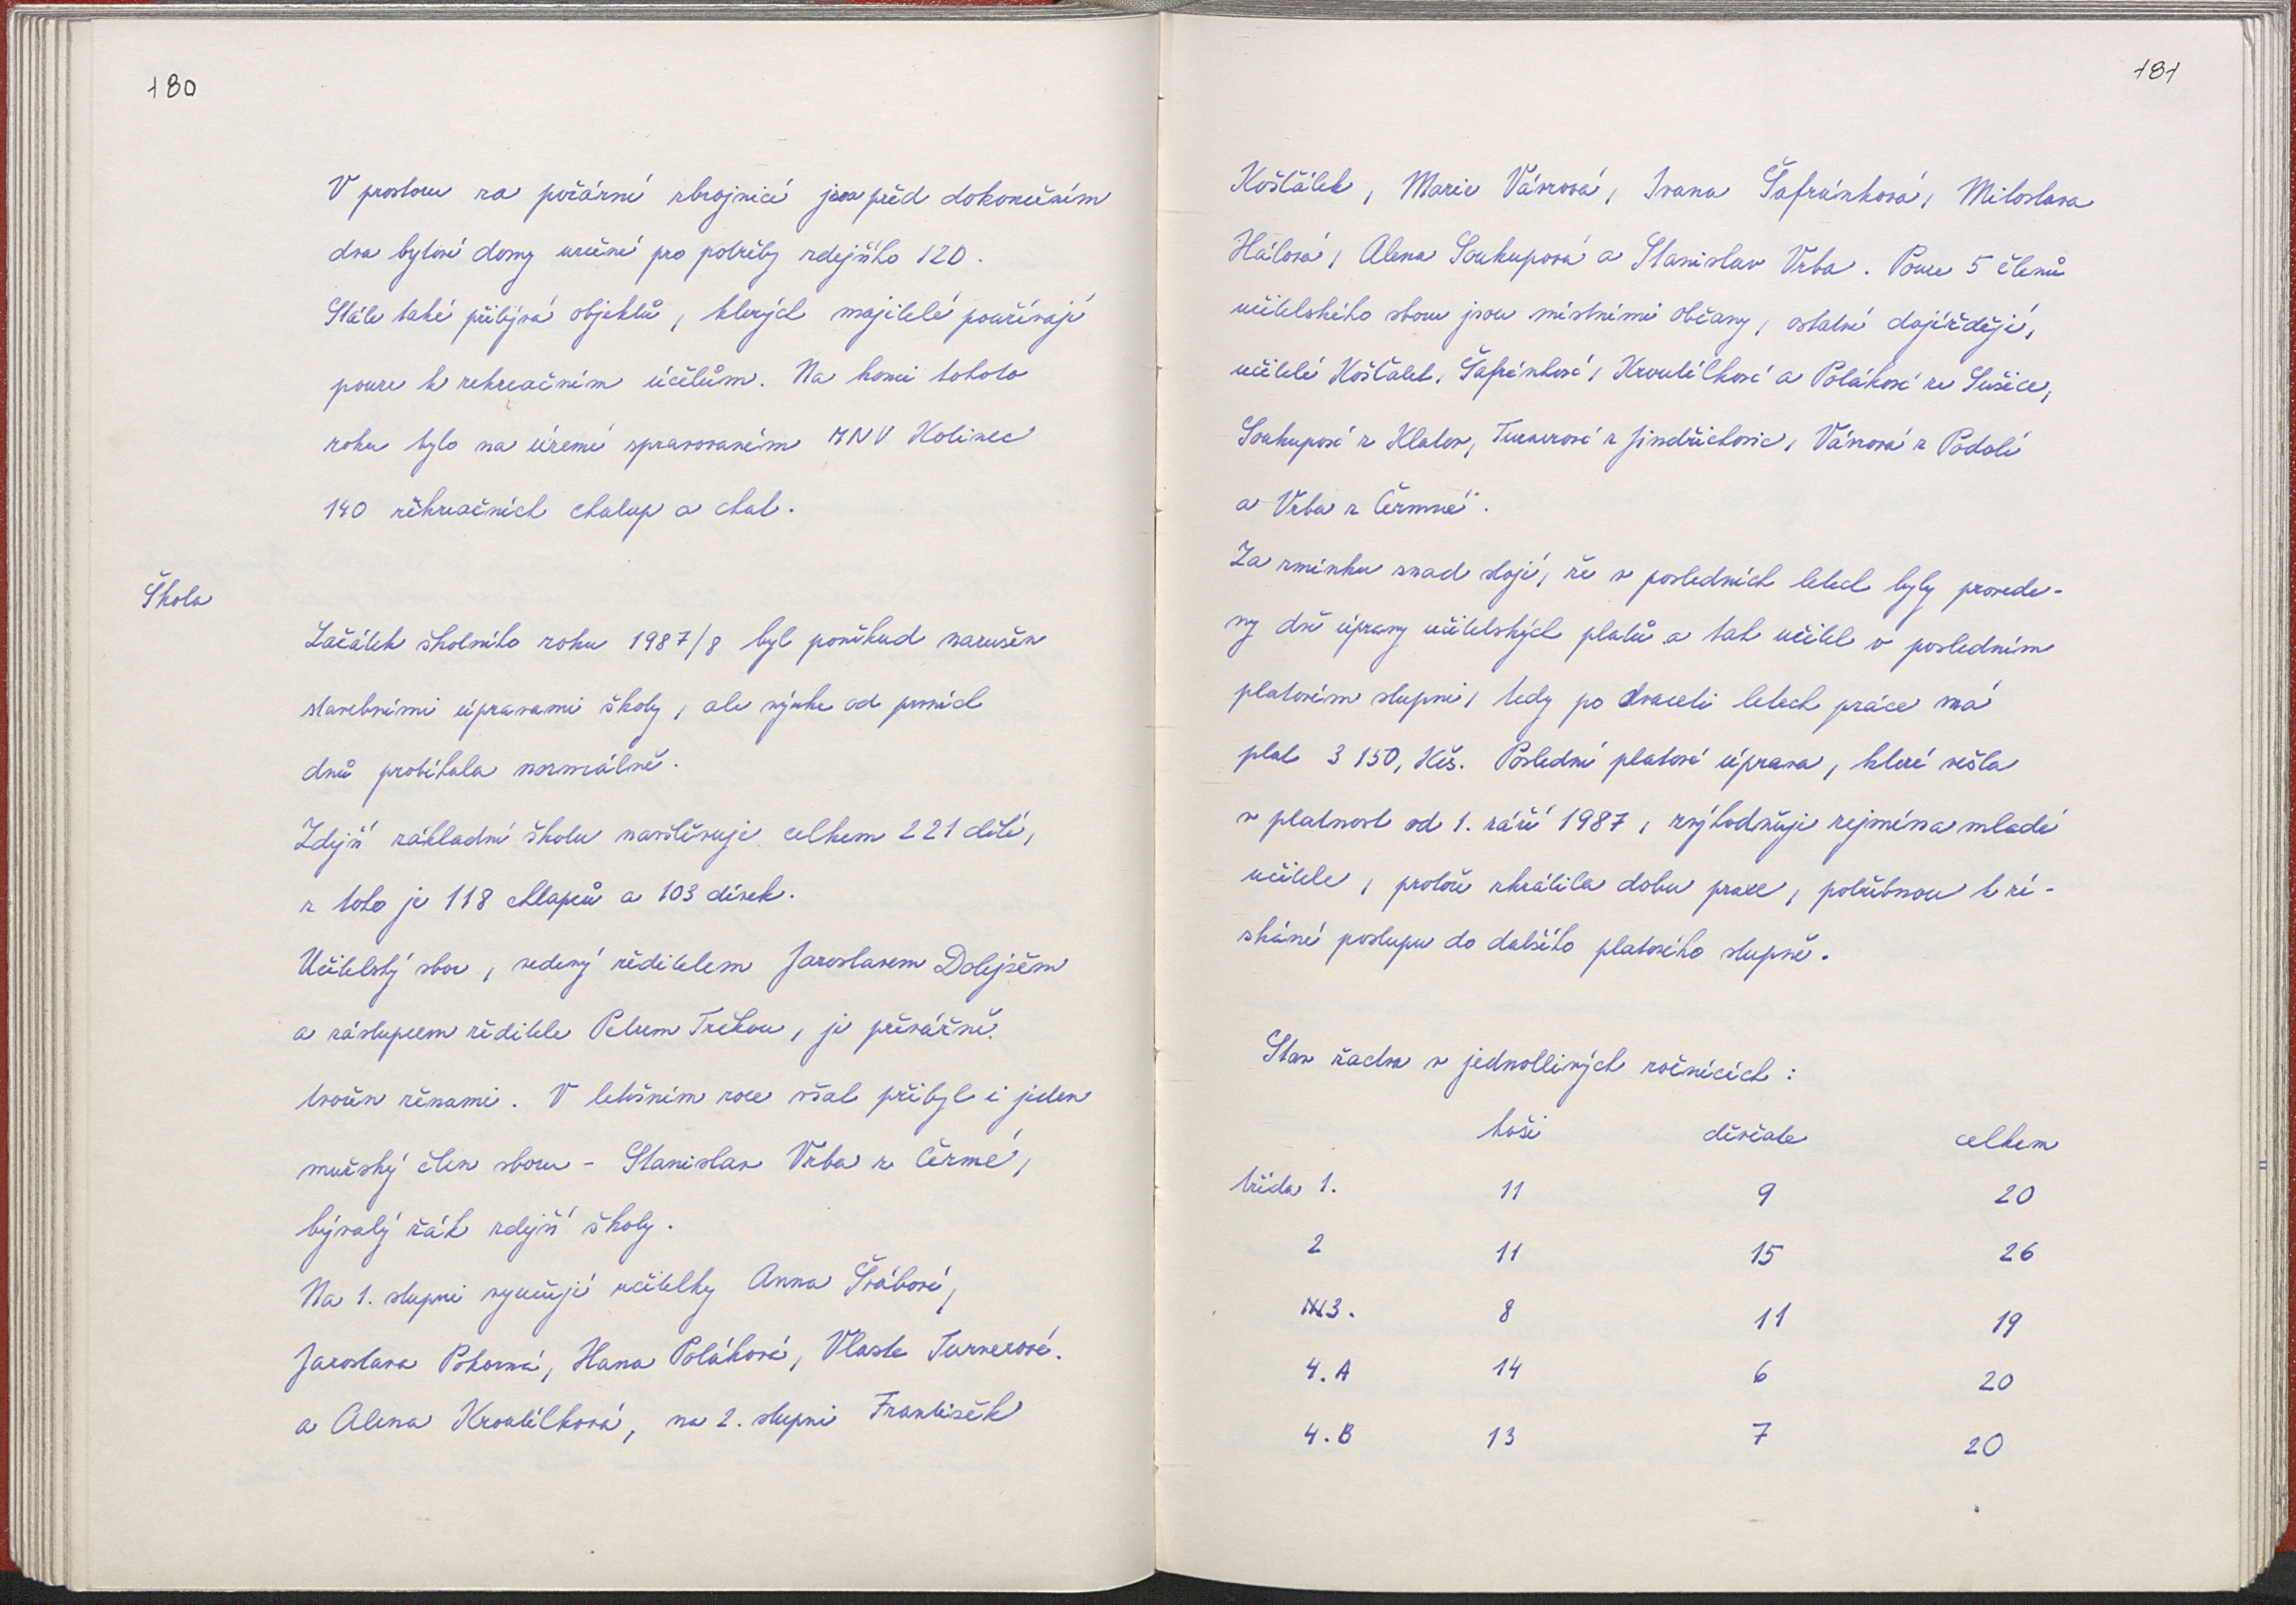 180
V prostoru za požární zbrojnicí jsou před dokončením
dva bytové domy určené pro potřeby zdejšího JZD.
Stále také přibývá objektů, kterých majitelé používají
pouze k rekreačním účelům. Na konci tohoto
roku bylo na území spravovaném MNV Kolinec
140 rekreačních chalup a chat.
Škola
Začátek školního roku 1987/8 byl poněkud narušen
stavebními úpravami školy, ale výuka od prvních
dnů probíhala normálně.
Zdejší základní školu navštěvuje celkem 221 dětí,
z toho je 118 chlapců a 103 dívek.
Učitelský sbor, vedený ředitelem Jaroslavem Dolejším
a zástupcem ředitele Petrem Trčkou, je převážně
tvořen ženami. V letošním roce však přibyl i jeden
mužský člen sboru - Stanislav Vrba z Čermé,
bývalý žák zdejší školy.
Na 1. stupni vyučují učitelky Anna Švábová,
Jaroslava Pokorná, Hana Poláková, Vlasta Turnerová.
a Alena Kroutilková, na 2. stupni František
181
Košťálek, Marie Vávrová, Ivana Šafránková, Miloslava
Hálová, Alena Soukupová a Stanislav Vrba. Pouze 5 členů
učitelského sboru jsou místními občany, ostatní dojíždějí,
učitelé Košťálek, Šafránková, Kroutilková a Poláková ze Sušice,
Soukupová z Klatov, Turnerová z Jindřichovic, Vávrová z Podolí
a Vrba z Čermné.
Za zmínku snad stojí, že v posledních letech byly provede-
ny dvě úpravy učitelských platů a tak učitel v posledním
platovém stupni, tedy po dvaceti letech práce má
plat 3 150, Kčs. Poslední platová úprava, která vešla
v platnost od 1. září 1987, zvýhodňuje zejména mladé
učitele, protože zkrátila dobu praxe, potřebnou k zí-
skání postupu do dalšího platového stupně.
Stav žactva v jednotlivých ročnících :
hoši děvčata celkem
třída 1. 11 9 20
2 11 15 26
3. 8 11 19
4. A 14 6 20
4. B 13 7 20